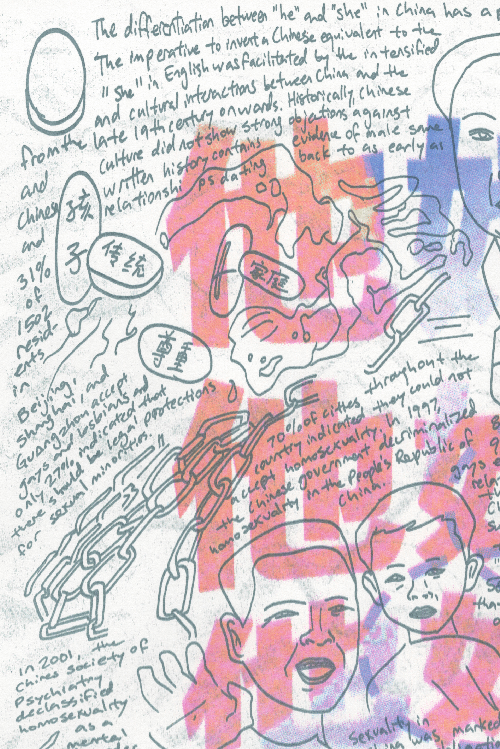 The differentiation between "he" and "she" in China has a
The imperative to invent a Chinese equivalent to the
"she" in English was facilitated by the intensified
and cultural interactions between China and the
from the late 19th century onwards. Historically, Chinese
culture did not show strong objections against
and written history contains evidence of male same
relationships dating back to as early as
Chinese
and
31%
of
1502
resid-
ents
in
Beijing,
Shanghai, and
Guangzhou accept
gays and lesbians and
only 27% indicated that
there should be legal protections
for sexual minorities."
孩
子
传统
家庭
尊重
他
他
他
throughout the
70% of cities
country indicated they could not
accept homosexuality. In 1997,
the Chinese government decriminalized
homosexuality in the People's Republic of
China.
gays
rela
In 2001, the
Chines society of
Psychiatry
declassified
homosexuality
as a
mental
sexuality in
was, marked